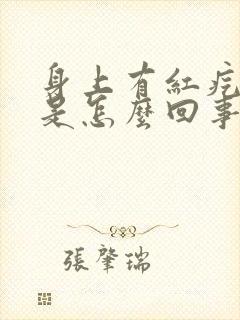 身上有紅疙
是怎麼回事
張肇瑞